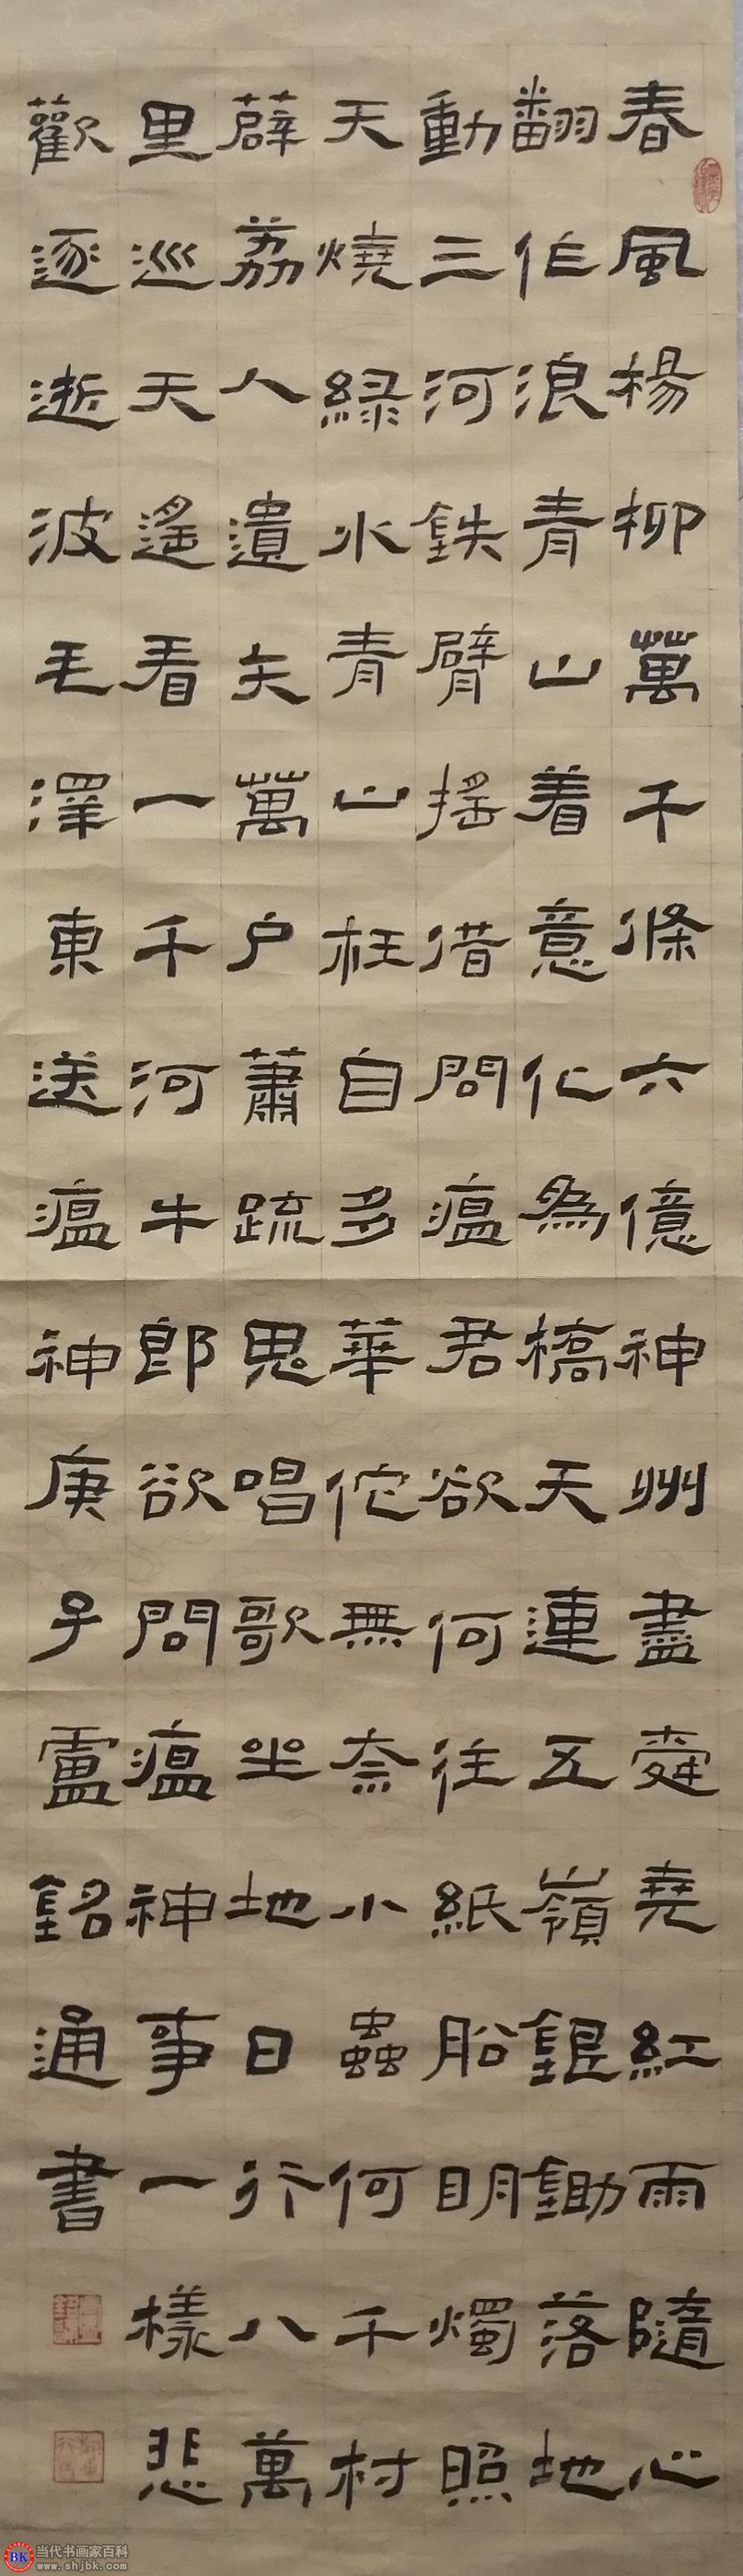 春風楊柳萬千條六億神州盡舜堯紅雨隨心
翻作浪青山着意化為橋天連五嶺銀鋤落地
動三河鉄臂搖借問瘟君欲何往紙船明燭照
天燒綠水青山枉自多華佗無奈小蟲何千村
薜荔人遺矢萬户蕭疏鬼唱歌坐地日行八萬
里巡天遙看一千河牛郎欲問瘟神事一樣悲
歡逐逝波毛澤東送瘟神庚子盧銘通書
BK
当代书画家百科
www.shjbk.com